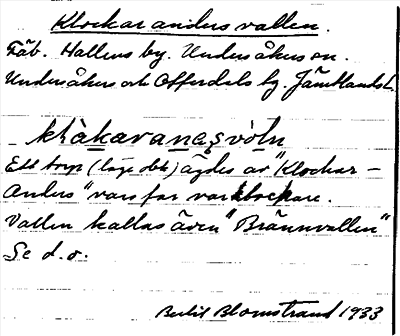 Klockarandersvallen.
Fäb. Hallens by. Undersåkers sn.
Undersåkers och Offerdals tg. Jämtlands l.
klåkaranaşvöln
Ett torp (läge obk) ägdes av "Klockar-
Anders" vars far var klockare.
Vallen kallas även "Brännvallen"
Se d. o.
Berlit Blomstrand 1933